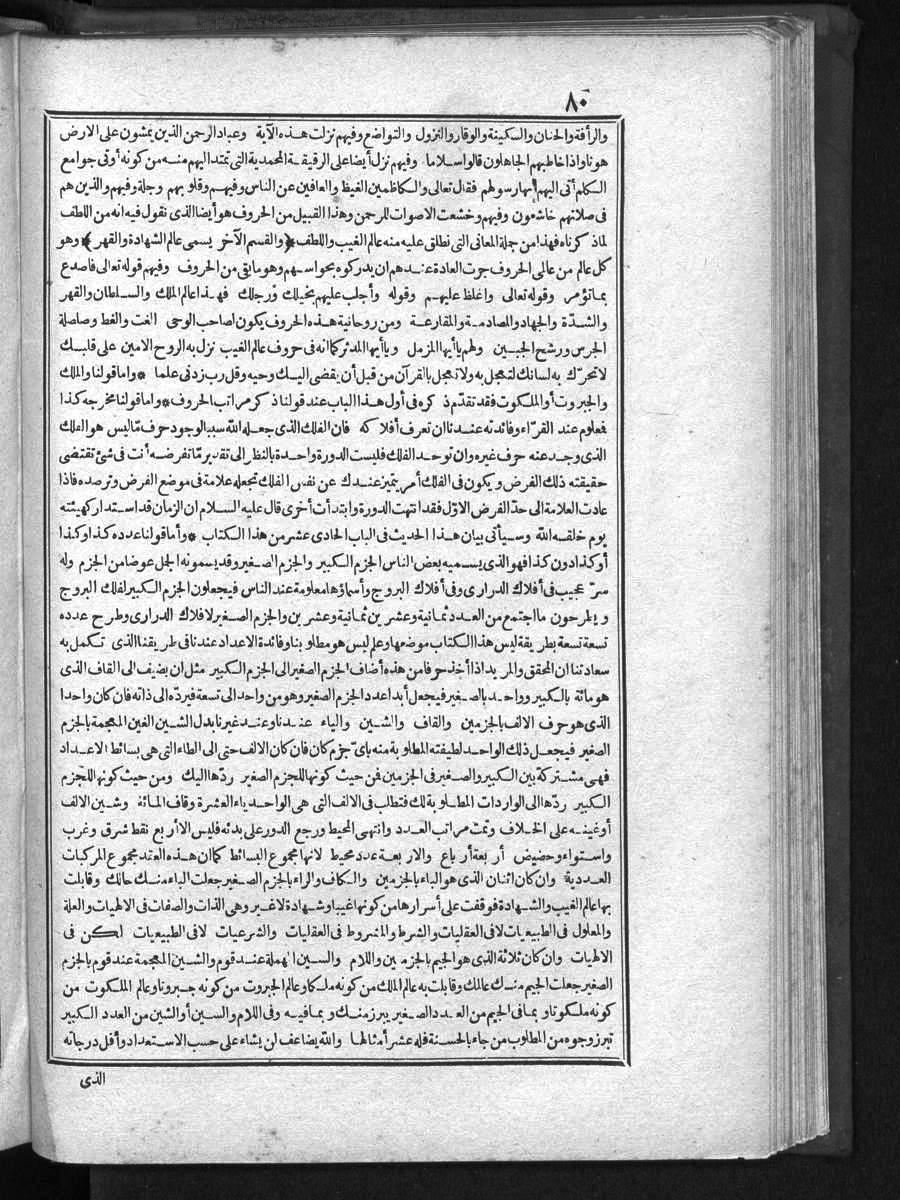 ٨٠
والرأفة والحنان والسكينة والوقار والنزول والتواضع وفيهم نزلت هذه الآية وعباد الرحمن الذين يمشون على الارض
هونا واذا خاطبهم الجاهلون قالوا سلاما وفيهم نزل أيضا على الرقيقة المحمدية التى تمتد اليهم منه من كونه أوتى جوامع
الكلم أتى اليهم بها رسولهم فقال تعالى والكاظمين الغيظ والعافين عن الناس وفيهم وقلوبهم وجلة وفيهم والذين هم
فى صلاتهم خاشعون وفيهم وخشعت الاصوات للرحمن وهذا القبيل من الحروف هو أيضا الذى نقول فيه انه من اللطف
لما ذكرناه فهذا من جملة المعانى التى نطلق عليه منه عالم الغيب واللطف ﴿والقسم الآخر يسمى عالم الشهادة والقهر﴾ وهو
كل عالم من عالمى الحروف جرت العادة عندهم ان يدركوه بحواسهم وهو ما بقى من الحروف وفيهم قوله تعالى فاصدع
بما تؤمر وقوله تعالى واغلظ عليهم وقوله وأجلب عليهم بخيلك ورجلك فهذا عالم الملك والسلطان والقهر
والشدّة والجهاد والمصادمة والمقارعة ومن روحانية هذه الحروف يكون لصاحب الوحى الغت والغط وصلصلة
الجرس ورشح الجبين ولهم يا أيها المزمل ويا أيها المدثر كما انه فى حروف عالم الغيب نزل به الروح الامين على قلبك
لا تحرّك به لسانك لتعجل به ولا تعجل بالقرآن من قبل أن يقضى اليك وحيه وقل رب زدنى علما * واما قولنا والملك
والجبروت أو الملكوت فقد تقدّم ذكره فى أول هذا الباب عند قولنا ذكر مراتب الحروف * واما قولنا مخرجه كذا
فمعلوم عند القرّاء وفائدته عندنا ان تعرف أفلاكه فان الفلك الذى جعله الله سببا لوجود حرف مّا ليس هو الفلك
الذى وجد عنه حرف غيره وان توحد الفلك فليست الدورة واحدة بالنظر الى تقدير مّا تفرضه أنت فى شئ تقتضى
حقيقته ذلك الفرض ويكون فى الفلك أمر يتميز عندك عن نفس الفلك تجعله علامة فى موضع الفرض وترصده فاذا
عادت العلامة الى حدّ الفرض الاوّل فقد انتهت الدورة وابتدأت أخرى قال عليه السلام ان الزمان قد استدار كهيئته
يوم خلقه الله وسيأتى بيان هذا الحديث فى الباب الحادى عشر من هذا الكتاب * وأما قولنا عدده كذا وكذا
أو كذا دون كذا فهو الذى يسميه بعض الناس الجزم الكبير والجزم الصغير وقد يسمونه الجمل عوضا من الجزم وله
سرّ عجيب فى أفلاك الدرارى وفى أفلاك البروج وأسماؤها معلومة عند الناس فيجعلون الجزم الكبير لفلك البروج
ويطرحون ما اجتمع من العدد ثمانية وعشرين ثمانية وعشرين والجزم الصغير لافلاك الدرارى وطرح عدده
تسعة تسعة بطريقة ليس هذا الكتاب موضعها وعلم ليس هو مطلوبنا وفائدة الاعداد عندنا فى طريقنا الذى تكمل به
سعادتنا ان المحقق والمريد اذا أخذ حرفا من هذه أضاف الجزم الصغير الى الجزم الكبير مثل ان يضيف الى القاف الذى
هو مائة بالكبير وواحد بالصغير فيجعل أبدا عدد الجزم الصغير وهو من واحد الى تسعة فيردّه الى ذاته فان كان واحدا
الذى هو حرف الالف بالجزمين والقاف والشين والياء عندنا وعند غيرنا بدل الشين الغين المعجمة بالجزم
الصغير فيجعل ذلك الواحد لطيفته المطلوبة منه بأىّ جزم كان فان كان الالف حتى الى الطاء التى هى بسائط الاعداد
فهى مشتركة بين الكبير والصغير فى الجزمين فمن حيث كونها للجزم الصغير ردّها اليك ومن حيث كونها للجزم
الكبير ردّها الى الواردات المطلوبة لك فتطلب فى الالف التى هى الواحد ياء العشرة وقاف المائة وشين الالف
أو غينه على الخلاف وتمت مراتب العدد وانتهى المحيط ورجع الدور على بدئه فليس الا أربع نقط شرق وغرب
واستواء وحضيض أربعة أرباع والاربعة عدد محيط لانها مجموع البسائط كما ان هذه العقد مجموع المركبات
العددية وان كان اثنان الذى هو الباء بالجزمين والكاف والراء بالجزم الصغير جعلت الباء منك حالك وقابلت
بها عالم الغيب والشهادة فوقفت على أسرارها من كونها غيبا وشهادة لا غير وهى الذات والصفات فى الالهيات والعلة
والمعلول فى الطبيعيات لا فى العقليات والشرط والمشروط فى العقليات والشرعيات لا فى الطبيعيات لكن فى
الالهيات وان كان ثلاثة الذى هو الجيم بالجزمين واللام والسين المهملة عند قوم والشين المعجمة عند قوم بالجزم
الصغير جعلت الجيم منك عالمك وقابلت به عالم الملك من كونه ملكا وعالم الجبروت من كونه جبروتا وعالم الملكوت من
كونه ملكوتا وبما فى الجيم من العدد الصغير يبرز منك وبما فيه وفى اللام والسين أو الشين من العدد الكبير
تبرز وجوه من المطلوب من جاء بالحسنة فله عشر أمثالها والله يضاعف لمن يشاء على حسب الاستعداد وأقل درجاته
الذى